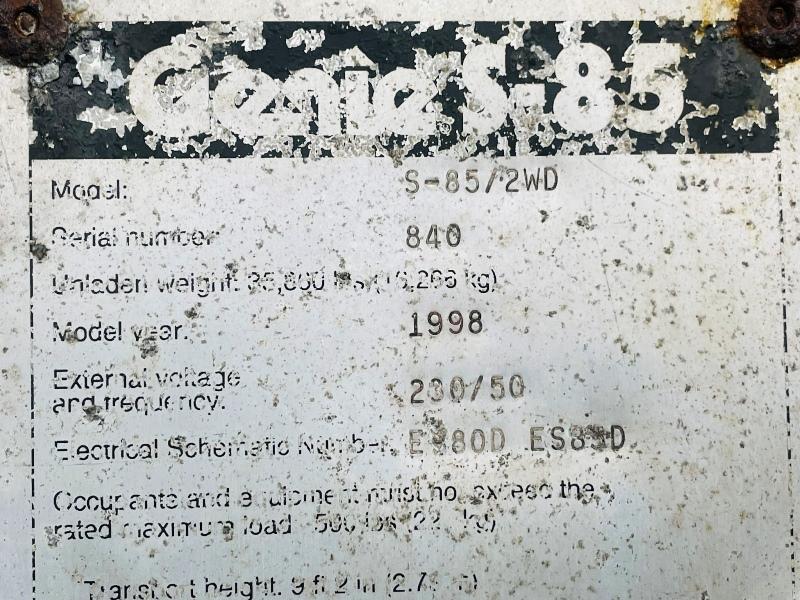 Genie S-85
Model: S-85/2WD
Serial number: 840
Unladen weight: lbs kg)
Model year: 1998
External voltage
and frequency: 230/50
Electrical Schematic Number: ES80D
Occupants and equipment must not exceed the
rated maximum load 500 lbs kg)
Transport height: 9 ft 2 in